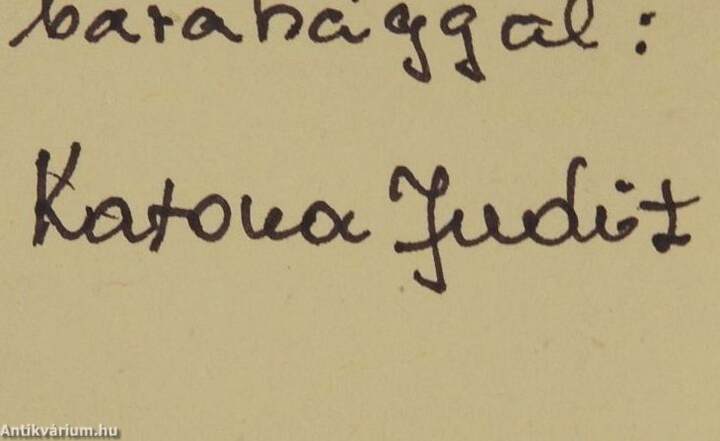 barátsággal:
Katona Judit
Antikvárium.hu